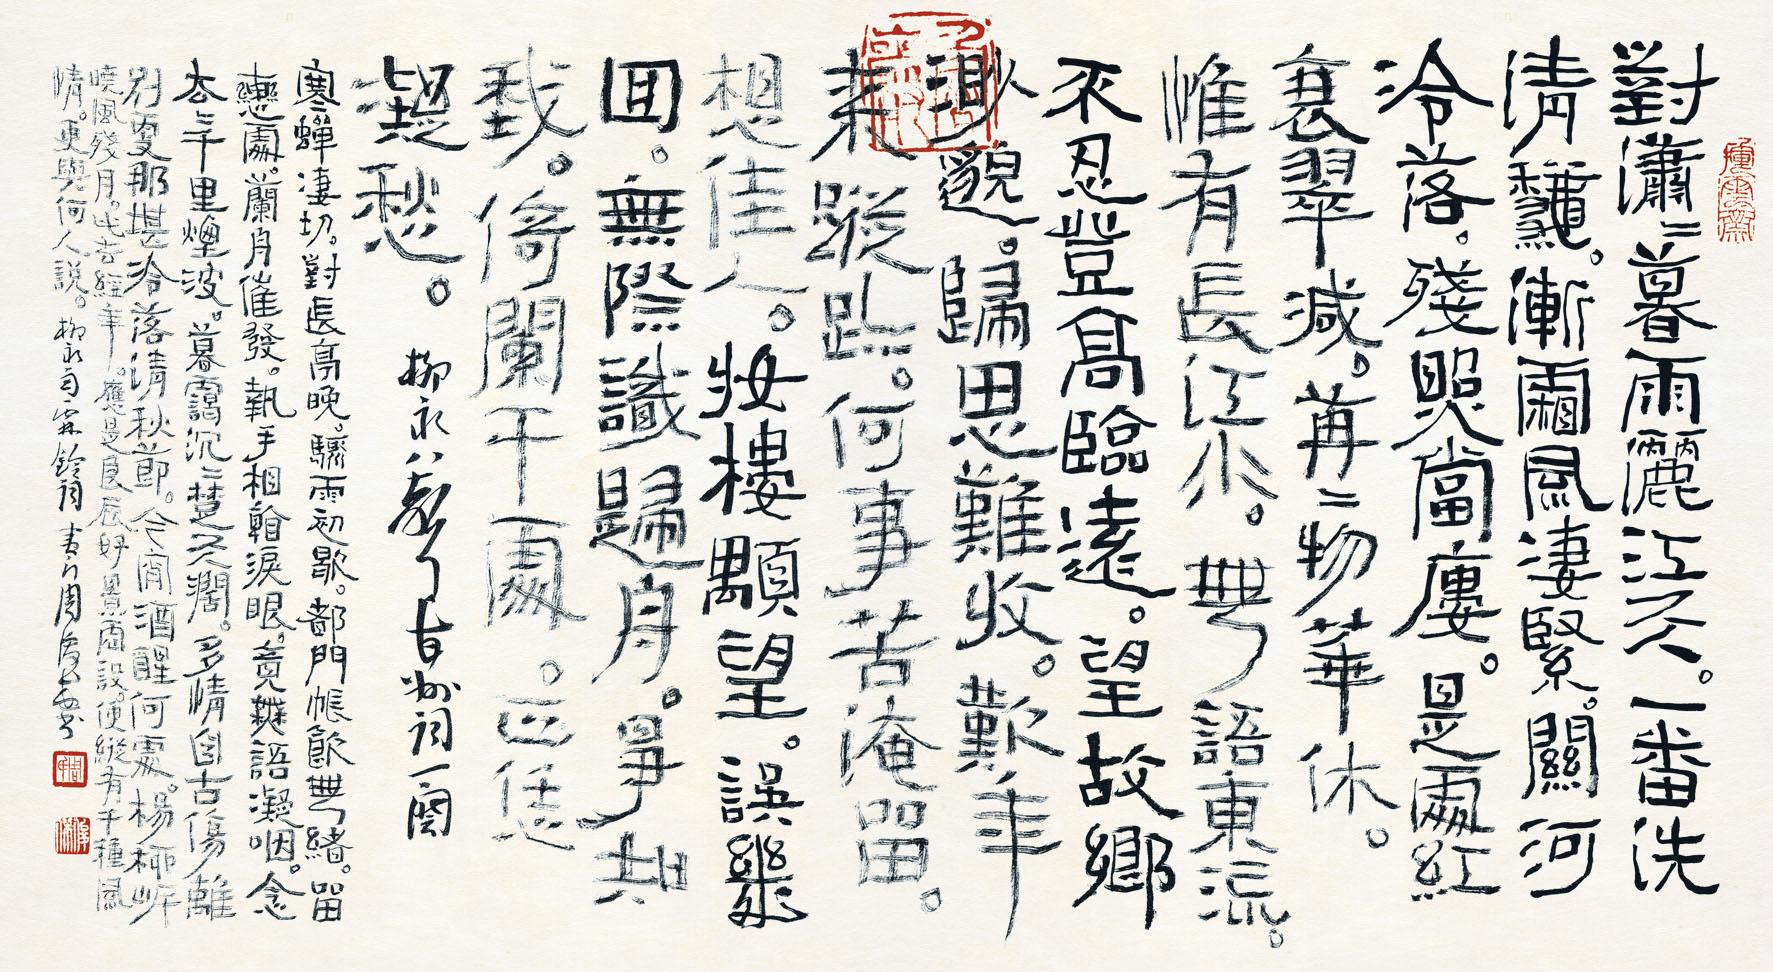 對瀟〻暮雨灑江天。一番洗
清龝。漸霜風淒緊。關河
冷落。殘照當廔。是處紅
衰翠減。苒〻物華休。
惟有長江水。無語東流。
不忍登高臨遠。望故鄉
渺邈。歸思難收。歎年
來蹤跡。何事苦淹留。
想佳人。妝樓顒望。誤幾
回。無際識歸舟。爭知
我。倚闌干處。正恁
凝愁。
柳永八聲甘州詞一闋
寒蟬淒切。對長亭晚。驟雨初歇。都門帳飲無緒。留
戀處。蘭舟催發。執手相看淚眼。竟無語凝咽。念
去〻千里煙波。暮靄沉〻楚天闊。多情自古傷離
別。更那堪冷落清秋節。今宵酒醒何處。楊柳岸
曉風殘月。此去經年。應是良辰好景虛設。便縱有千種風
情。更與何人說。柳永雨霖鈴詞 周